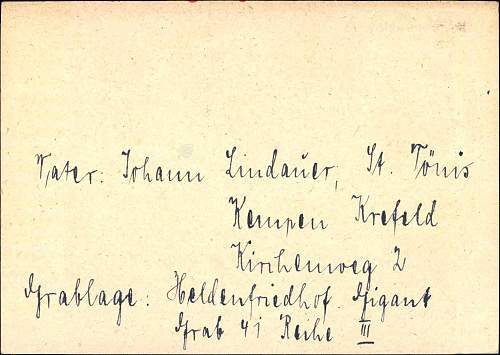 Vater: Johann Lindauer, St. Tönis
Kempen Krefeld
Kirchenweg 2
Grablage: Heldenfriedhof Gigant
Grab 41 Reihe III